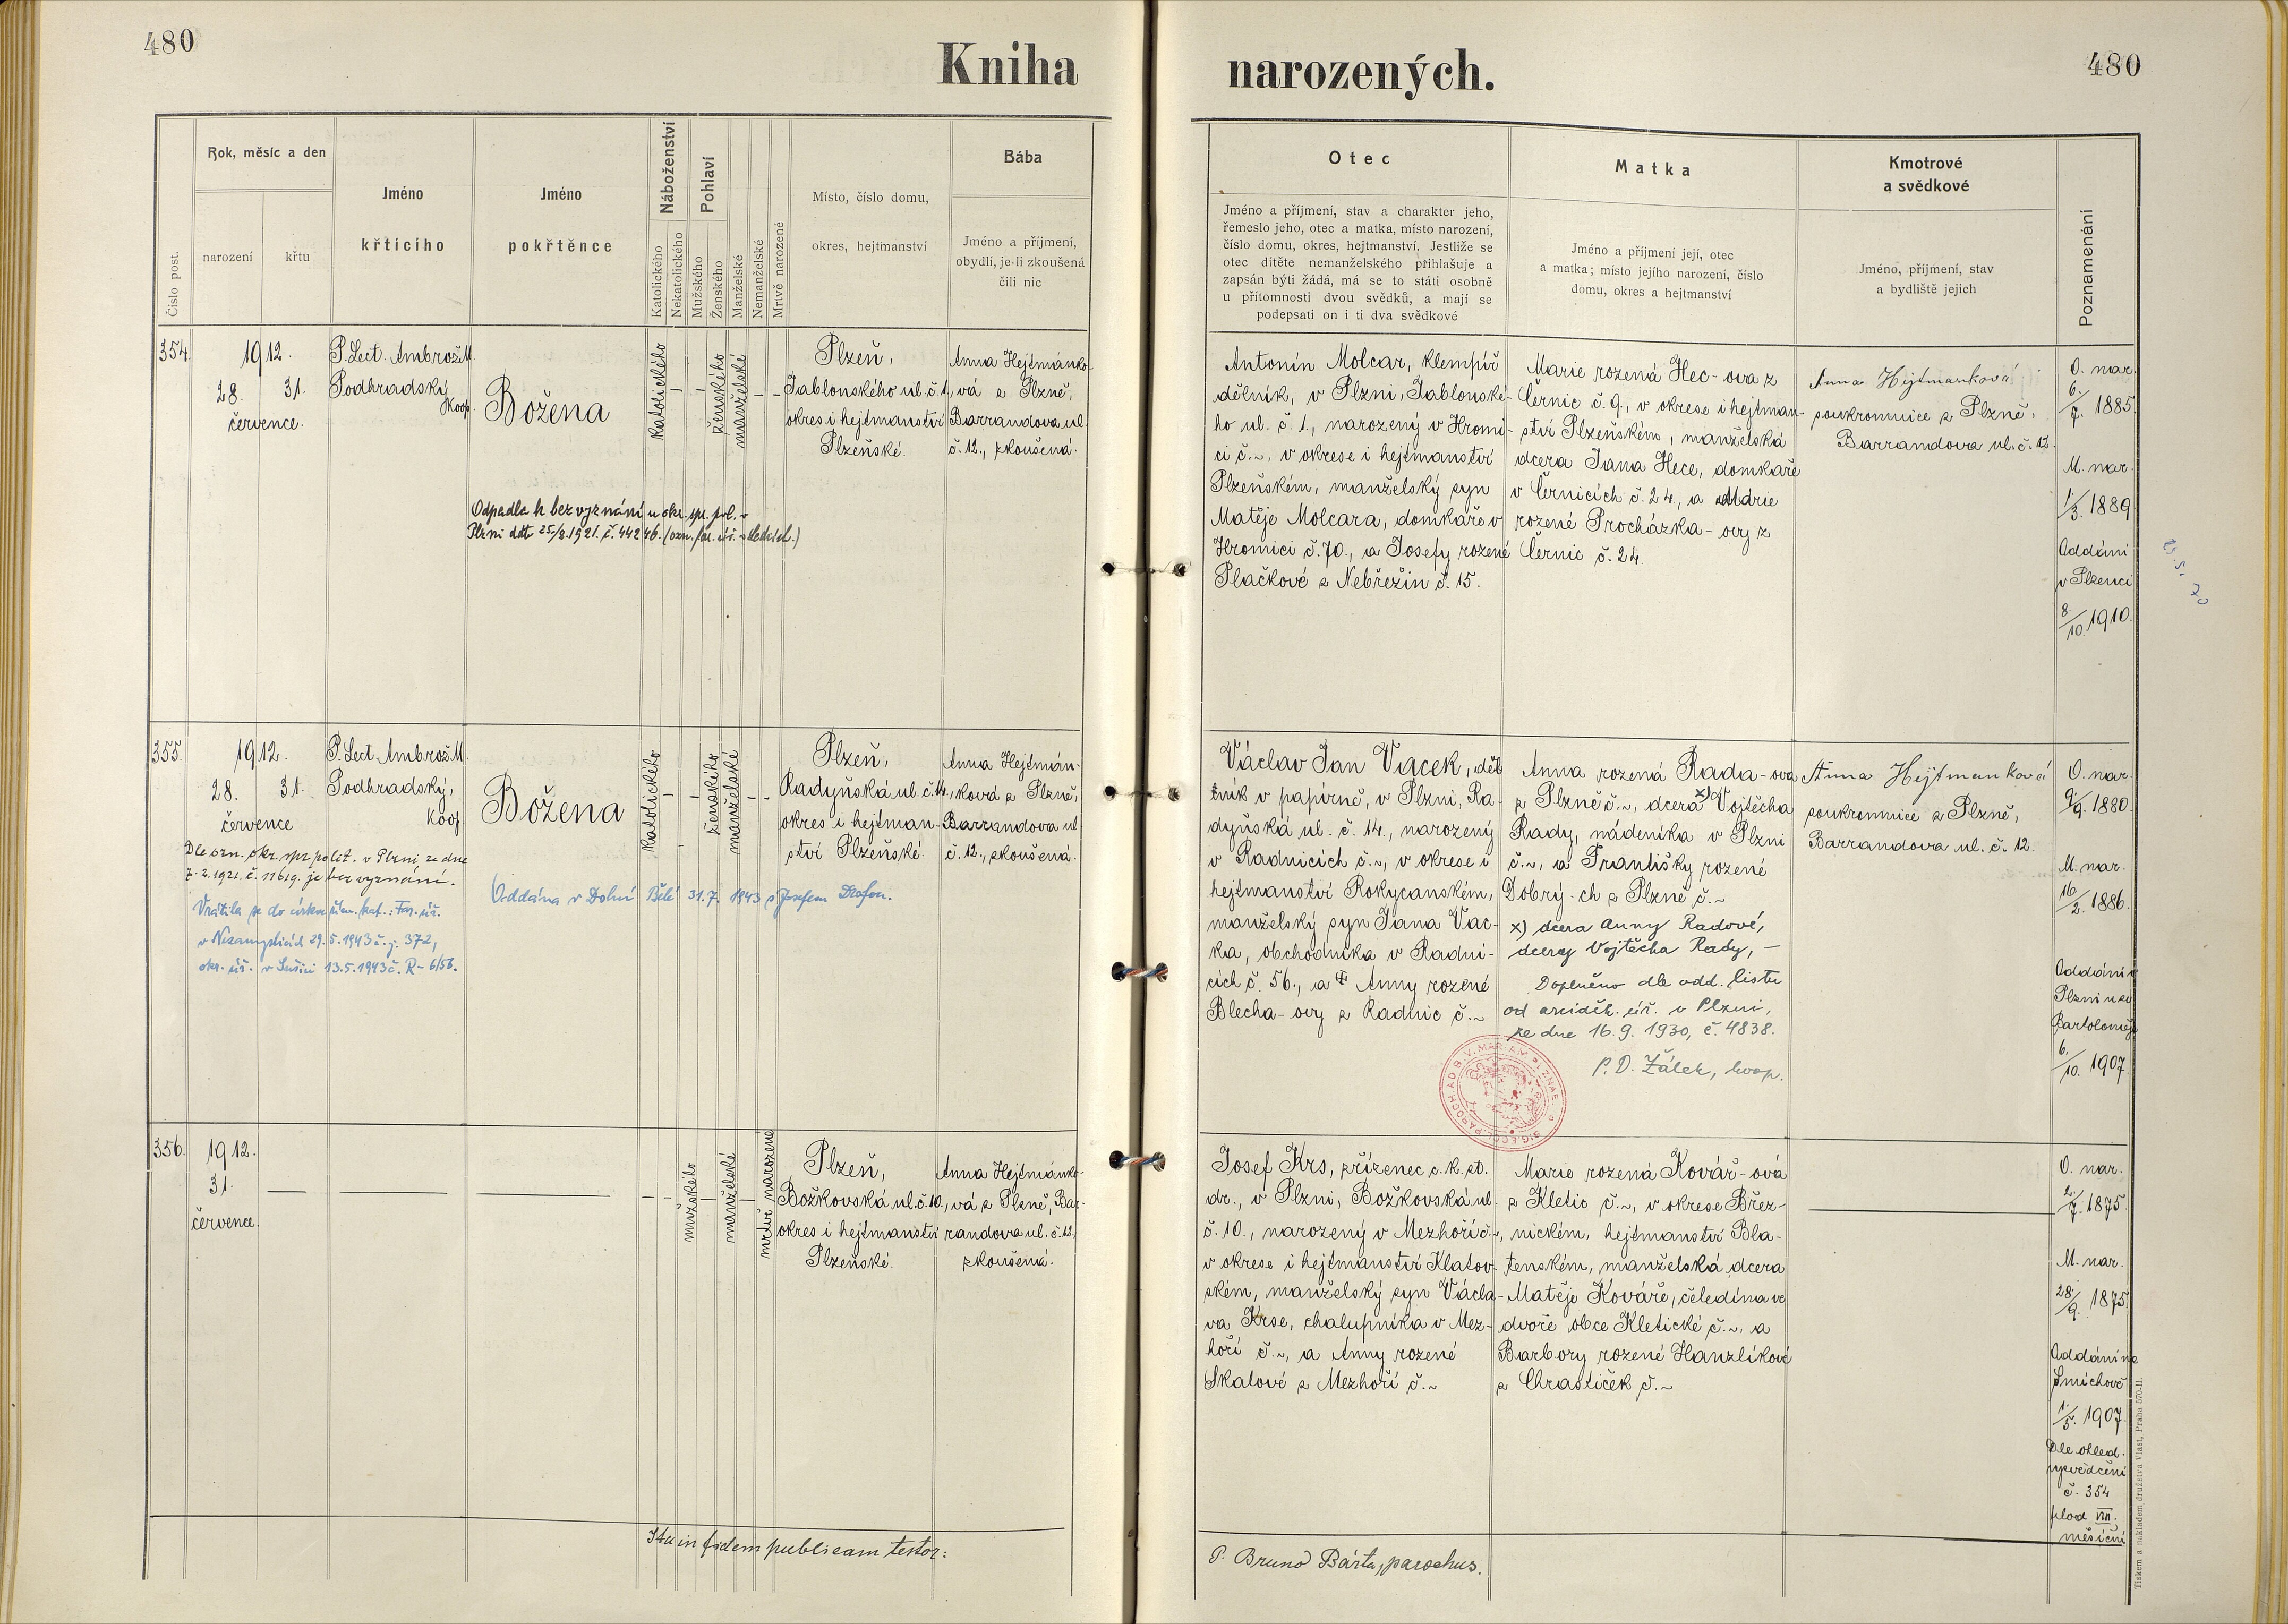 480
Kniha
narozených.
480
Číslo post.
Rok, měsíc a den
narození
křtu
Jméno
křticího
Jméno
pokřtěnce
Náboženství
Katolického
Nekatolického
Pohlaví
Mužského
Ženského
Manželské
Nemanželské
Mrtvě narozené
Místo, číslo domu,
okres, hejtmanství
Bába
Jméno a příjmení,
obydlí, je-li zkoušená
čili nic
Otec
Jméno a příjmení, stav a charakter jeho,
řemeslo jeho, otec a matka, místo narození,
číslo domu, okres, hejtmanství. Jestliže se
otec dítěte nemanželského přihlašuje a
zapsán býti žádá, má se to státi osobně
u přítomnosti dvou svědků, a mají se
podepsati on i ti dva svědkové
Matka
Jméno a příjmení její, otec
a matka; místo jejího narození, číslo
domu, okres a hejtmanství
Kmotrové
a svědkové
Jméno, příjmení, stav
a bydliště jejich
Poznamenání
354.
1912.
28. 31.
července.
P. Lect. Ambrož M.
Podhradský
koop.
Božena
katolického
ženského
manželské
Plzeň,
Jablonského ul. č. 1,
okres i hejtmanství
Plzeňské.
Anna Hejtmánko-
vá z Plzně,
Barrandova ul.
č. 12., zkoušená.
Odpadla k bez vyznání u okr. spr. pol. v
Plzni dtto 25/8.1921. č. 44246.
Antonín Molcar, klempíř
dělník, v Plzni, Jablonské-
ho ul. č. 1., narozený v Hromi-
ci č. ~, v okrese i hejtmanství
Plzeňském, manželský syn
Matěje Molcara, domkaře v
Hromici č. 70., a Josefy rozené
Plačkové z Nebřežin č. 15.
Marie rozená Hec-ova z
Černic č. 9., v okrese i hejtman-
ství Plzeňském, manželská
dcera Jana Hece, domkaře
v Černicích č. 24., a Marie
rozené Procházka-ovy z
Černic č. 24.
Anna Hejtmanková
soukromnice z Plzně,
Barrandova ul. č. 12.
O. nar.
6./7. 1885.
M. nar.
1./3. 1889.
Oddáni
v Plzenci
8./10. 1910.
355.
1912.
28. 31.
července
P. Lect. Ambrož M.
Podhradský,
koop.
Božena
katolického
ženského
manželské
Plzeň,
Radyňská ul. č. 14.,
okres i hejtman-
ství Plzeňské.
Anna Hejtmán-
ková z Plzně,
Barrandova ul.
č. 12., zkoušená.
Dle ozn. okr. spr. polit. v Plzni ze dne
7.2.1921. č. 11619. je bez vyznání.
Vrátila se do církve řím. kat.: Far. úř.
v Nezamyslicích 29.5.1943 č. j. 372,
okr. úř. v Sušici 13.5.1943 č. R-6/56.
Oddána v Dolní Bělé 31.7. 1943 s Josefem
Václav Jan Vacek, děl-
ník v papírně, v Plzni, Ra-
dyňská ul. č. 14., narozený
v Radnicích č. ~, v okrese i
hejtmanství Rokycanském,
manželský syn Jana Vac-
ka, obchodníka v Radni-
cích č. 56., a Anny rozené
Blecha-ovy z Radnic č. ~
Anna rozená Rada-ova
z Plzně č. ~, dcera x) Vojtěcha
Rady, nádeníka v Plzni
č. ~, a Františky rozené
Dobrý-ch z Plzně č. ~
x) dcera Anny Radové,
dcery Vojtěcha Rady, –
Doplněno dle odd. listu
od arciděk. úř. v Plzni,
ze dne 16.9. 1930, č. 4838.
P. D. Žálek, koop.
Anna Hejtmanková
soukromnice z Plzně,
Barrandova ul. č. 12.
O. nar.
9./9. 1880.
M. nar.
16./2. 1886.
Oddáni v
Plzni u sv.
Bartoloměje
6./10. 1907.
356.
1912.
31.
července.
mužského
manželské
mrtvě narozené
Plzeň,
Božkovská ul. č. 10.,
okres i hejtmanství
Plzeňské.
Anna Hejtmánko-
vá z Plzně, Bar-
randova ul. č. 12.,
zkoušená.
Josef Krs, zřízenec c. k. st.
dr., v Plzni, Božkovská ul.
č. 10., narozený v Mezhoří č. ~,
v okrese i hejtmanství Klatov-
ském, manželský syn Václa-
va Krse, chalupníka v Mez-
hoří č. ~, a Anny rozené
Skalové z Mezhoří č. ~
Marie rozená Kovář-ová
z Kletic č. ~, v okrese Břez-
nickém, hejtmanství Bla-
tenském, manželská dcera
Matěje Kováře, čeledína ve
dvoře obce Kletické č. ~, a
Barbory rozené Hanzlíkové
z Chrastiček č. ~
O. nar.
2./7. 1875.
M. nar.
28./9. 1875.
Oddáni na
Smíchově
1./5. 1907.
Dle ohled.
vysvědčení
č. 354
plod VIII.
měsíční
Ita in fidem publicam testor:
P. Bruno Bárta, parochus.
Tiskem a nakladem družstva Vlast, Praha 570-II.